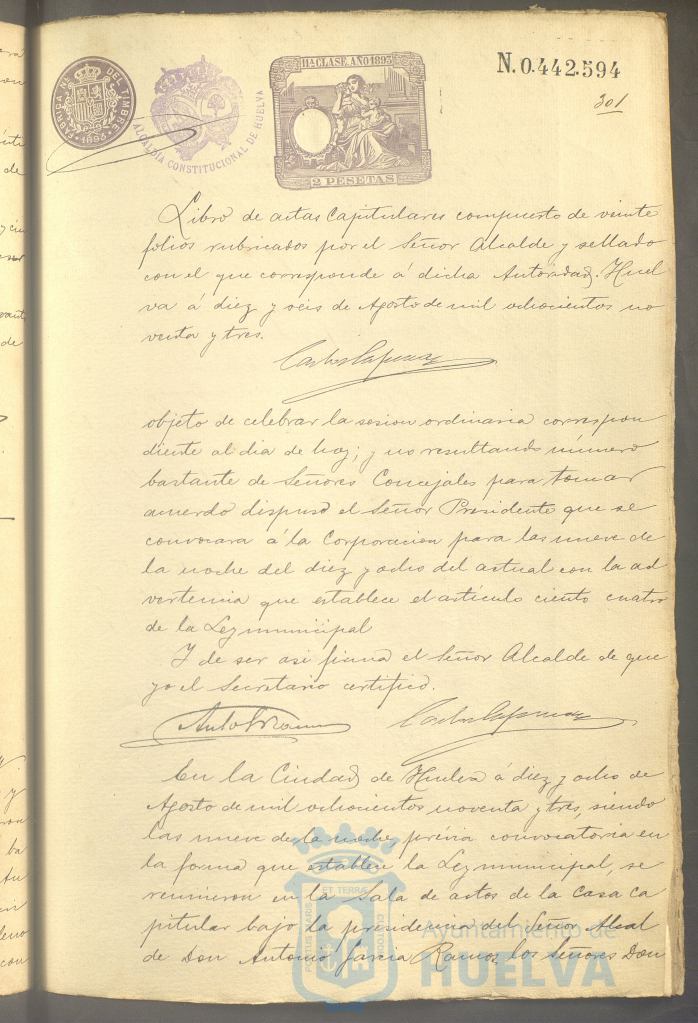 FÁBRICA NAL DEL TIMBRE
1893
ALCALDÍA CONSTITUCIONAL DE HUELVA
11ª CLASE. AÑO 1893
2 PESETAS
N.0.442.594
301
Libro de actas Capitulares compuesto de veinte
folios rubricados por el Señor Alcalde y sellado
con el que corresponde á dicha Autoridad. Huel
va á diez y seis de Agosto de mil ochocientos no
venta y tres.
objeto de celebrar la sesion ordinaria correspon
diente al dia de hoy; y no resultando número
bastante de Señores Concejales para tomar
acuerdo dispuso el Señor Presidente que se
convocara á la Corporacion para las nueve de
la noche del diez y ocho del actual con la ad
vertencia que establece el artículo ciento cuatro
de la Ley municipal
Y de ser asi firma el Señor Alcalde de que
yo el Secretario certifico.
En la Ciudad de Huelva á diez y ocho de
Agosto de mil ochocientos noventa y tres, siendo
las nueve de la noche, prévia convocatoria en
la forma que establece la Ley municipal, se
reunieron en la Sala de actos de la Casa ca
pitular bajo la presidencia del Señor Alcal
de Don Antonio Garcia Ramos, los Señores Don
PORTUS MARIS ET TERRÆ CUSTODIA
Ayuntamiento de
HUELVA